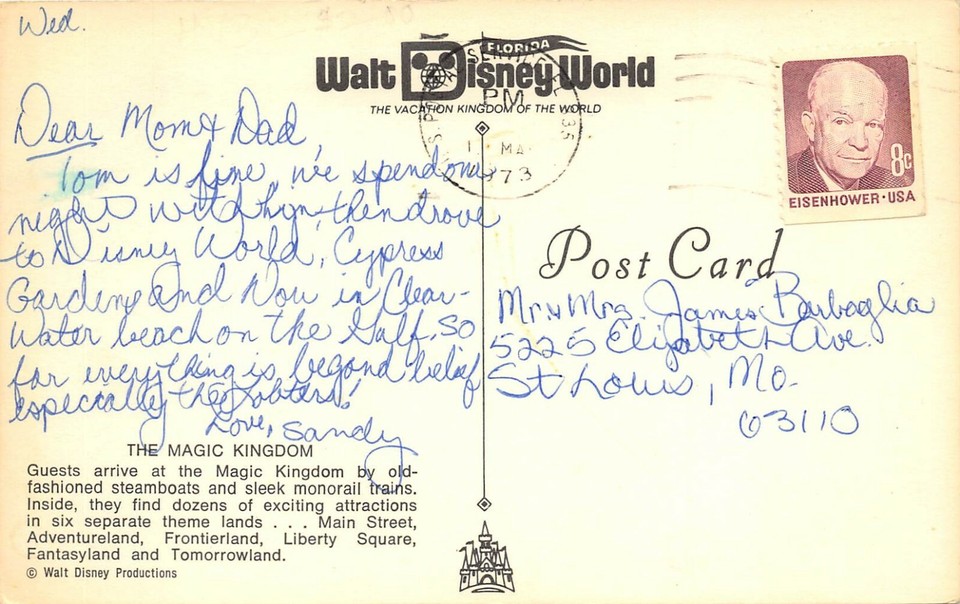 Wed.
FLORIDA
Walt Disney World
THE VACATION KINGDOM OF THE WORLD
PM
1973
8c
EISENHOWER · USA
Dear Mom & Dad,
Tom is fine, we spend one
night with him then drove
to Disney World, Cypress
Gardens and Now in Clear-
water beach on the Gulf. So
far everything is beyond belief
especially the Lobsters!
Love, Sandy
Post Card
Mr. & Mrs. James Barbaglia
5225 Elizabeth Ave.
St Louis, Mo.
63110
THE MAGIC KINGDOM
Guests arrive at the Magic Kingdom by old-
fashioned steamboats and sleek monorail trains.
Inside, they find dozens of exciting attractions
in six separate theme lands . . . Main Street,
Adventureland, Frontierland, Liberty Square,
Fantasyland and Tomorrowland.
© Walt Disney Productions